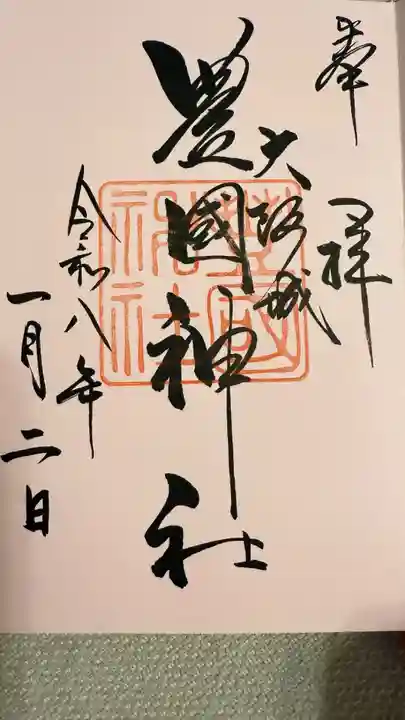 奉拝
大阪城
豊國神社
令和八年
一月二日
豊國
神社